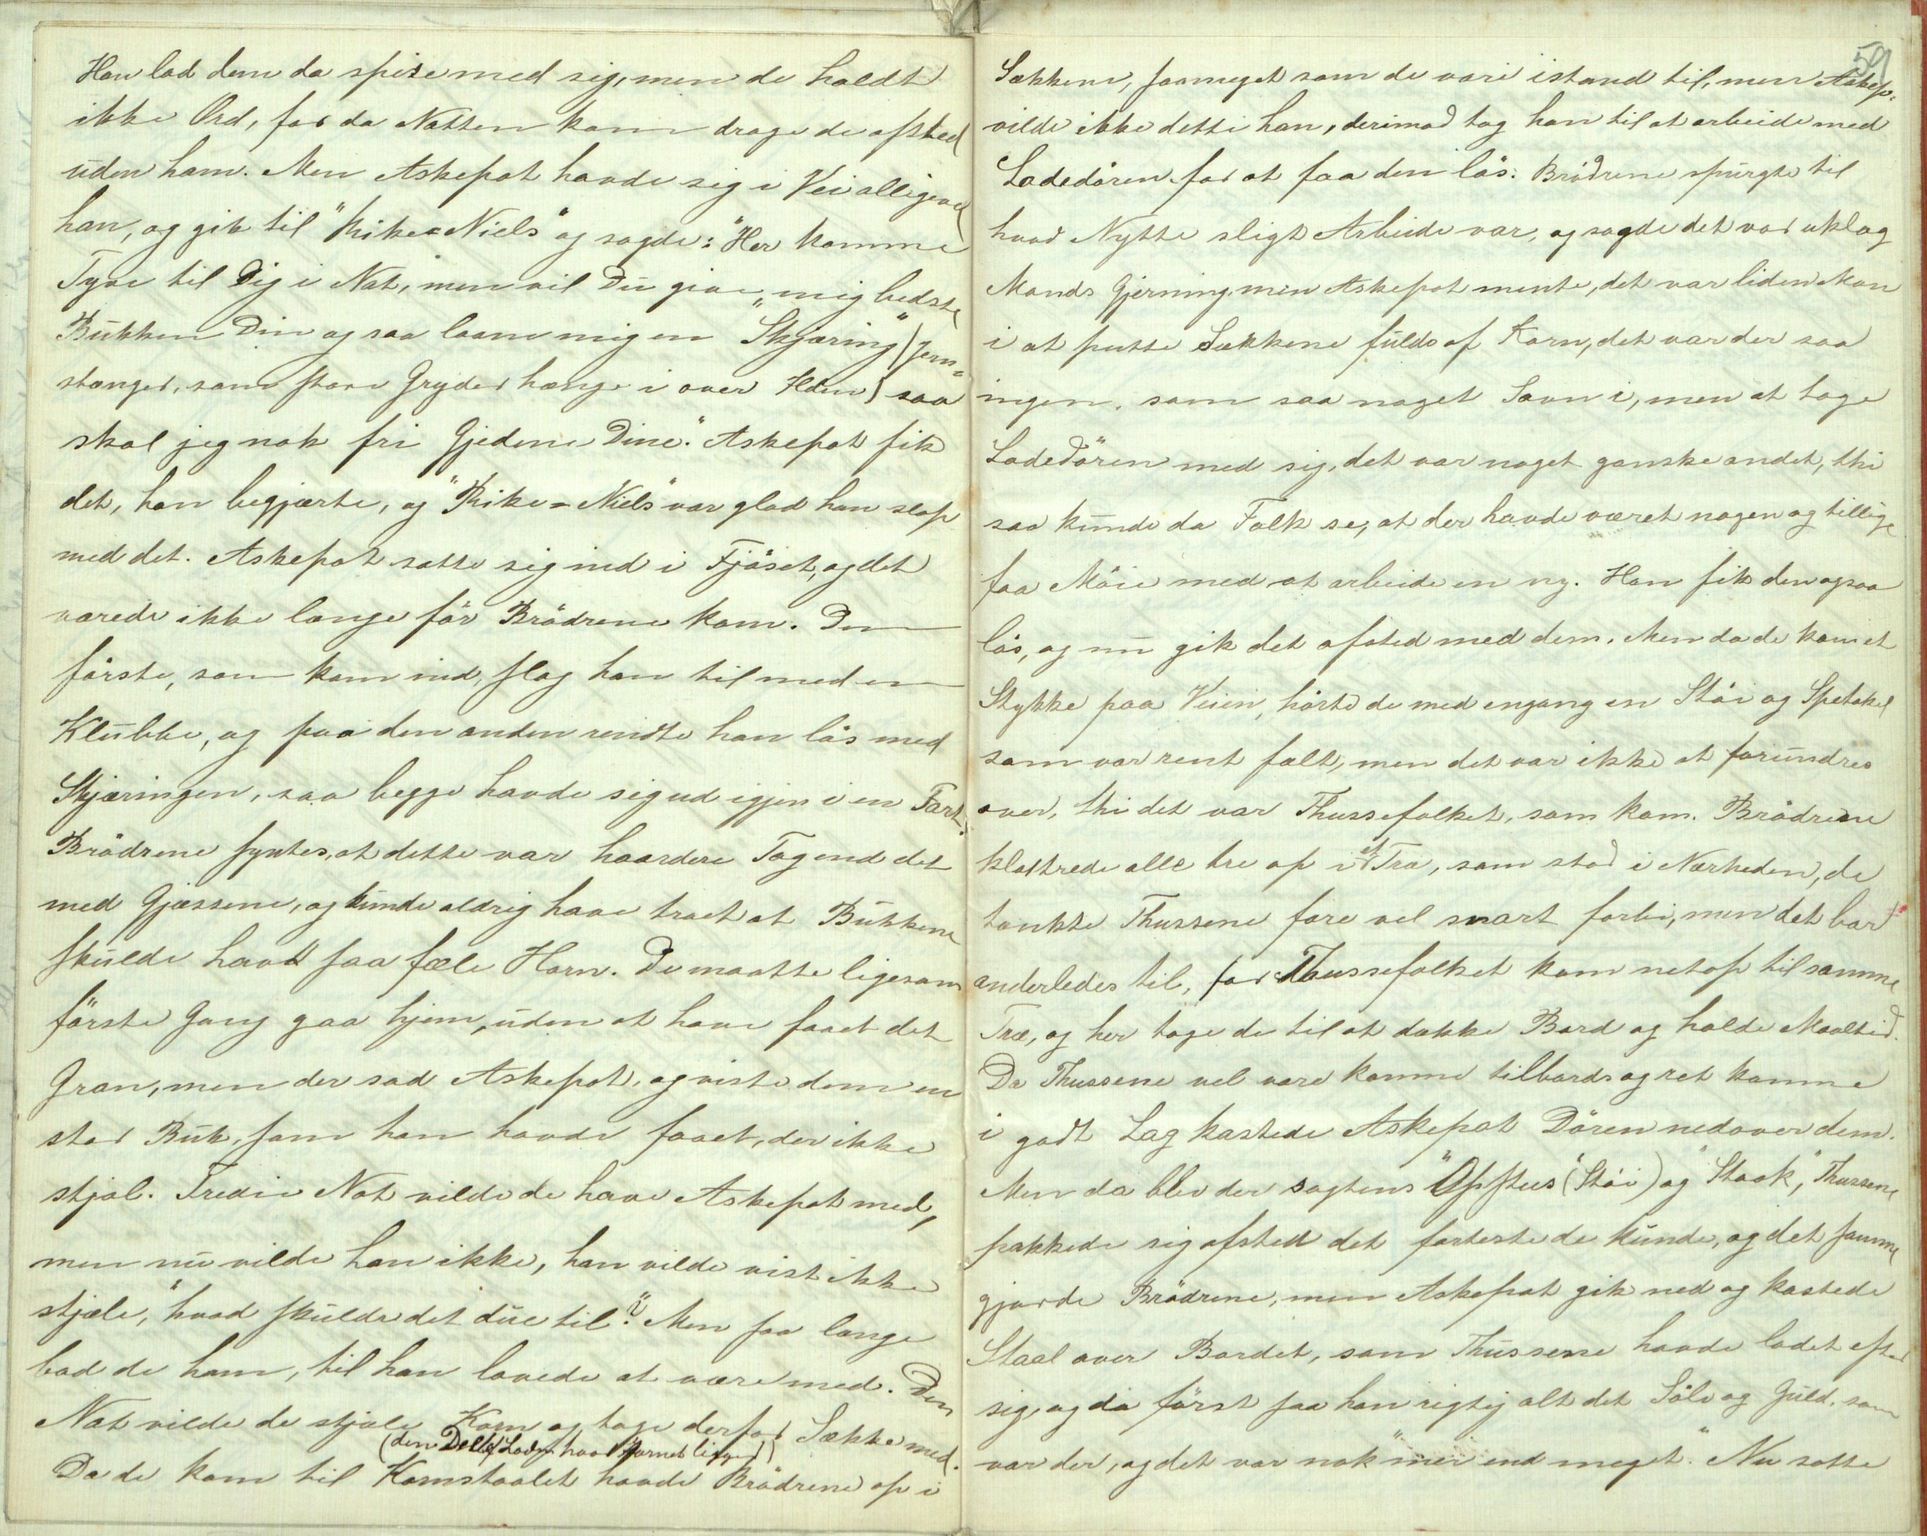 Han lod dem da spise med sig, men de holdt
ikke Ord, for da Natten kom droge de afsted
uden ham. Men Askepot havde sig i Vei alligevel
han, og gik til "Rike-Niels" og sagde: "Her komme
Tyve til Dig i Nat, men vil Du give mig bedste
Bukken Din og saa laane mig en "Skjæring" (Jern-
stanger, som store Gryder hænge i over Ilden) saa
skal jeg nok fri Gjedene Dine." Askepot fik
det, han begjærte, og "Rike-Niels" var glad han slap
med det. Askepot satte sig ind i Fjöset, og det
varede ikke længe för Brödrene kom. Den
förste, som kom ind, slog han til med en
Klubbe, og paa den anden rendte han lös med
Skjæringen, saa begge havde sig ud igjen i en Fart.
Brödrene syntes, at dette var haardere Tag end det
med Gjæssene, og kunde aldrig have troet at Bukkene
skulde havt saa fæle Horn. De maatte ligesom
förste Gang gaa hjem, uden at have faaet det
Gran, men der sad Askepot, og viste dem en
stor Buk, som han havde faaet, der ikke
stjal. Tredie Nat vilde de have Askepot med,
men nu vilde han ikke, han vilde vist ikke
stjæle, "hvad skulde det due til?" Men saa længe
bad de ham, til han lovede at være med. Den
Nat vilde de stjæle Korn og toge derfor Sække med.
(den Del af Laden hvor Kornet ligger)
Da de kom til Kornstaalet havde Brödrene op i
59
Sækkene, saameget som de vare istand til, men Askep.
vilde ikke dette han, derimod tog han til at arbeide med
Ladedören for at faa den lös. Brödrene spurgte til
hvad Nytte sligt Arbeide var, og sagde det var uklog
Mands Gjerning, men Askepot mente, det var liden Mon
i at putte Sækkene fulde af Korn, det var der saa
ingen, som saa noget Savn i, men at tage
Ladedören med sig, det var noget ganske andet, thi
saa kunde da Folk se, at der havde været nogen og tillige
faa Möie med at arbeide en ny. Han fik den ogsaa
lös, og nu gik det afsted med dem. Men da de kom et
Stykke paa Veien, hörte de med engang en Stöi og Spetakel
som var rent fælt, men det var ikke at forundres
over, thi det var Thussefolket, som kom. Brödrene
klattrede alle tre op i et Træ, som stod i Nærheden, de
tænkte Thussene fore vel snart forbi, men det bar
anderledes til, for Thussefolket kom netop til samme
Træ, og her toge de til at dække Bord og holde Maaltid.
Da Thussene vel vare komne tilbords og ret komne
i godt Lag kastede Askepot Dören nedover dem.
Men da blev der sagtens "Opstus" (Stöi) og "Staak", Thussene
pakkede sig afsted det forteste de kunde, og det samme
gjorde Brödrene, men Askepot gik ned og kastede
Staal over Bordet, som Thussene havde ladet efter
sig, og da först saa han rigtig alt det Sölv og Guld, som
var der, og det var nok "mei end meget". Nu satte